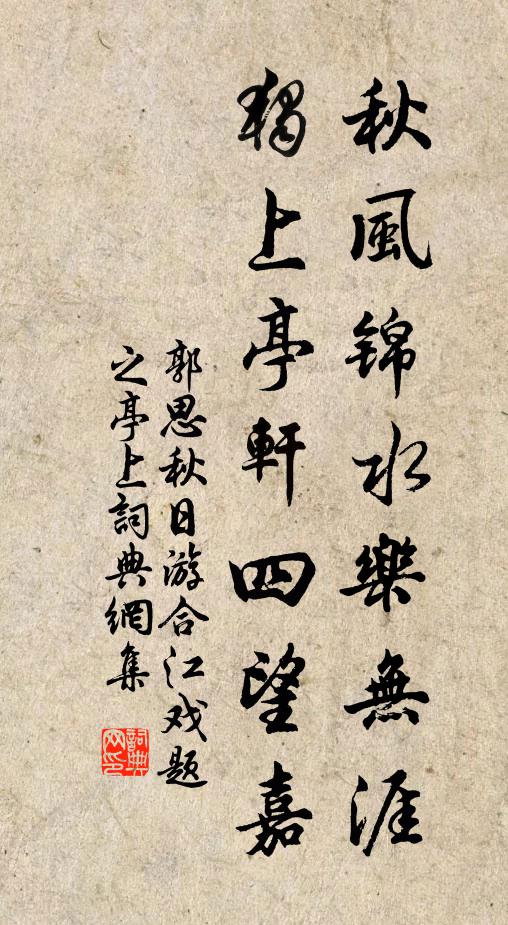 秋風锦水樂無涯
獨上亭軒四望嘉
郭思秋日游合江戏题
之亭上詞典網集
詞典
网印